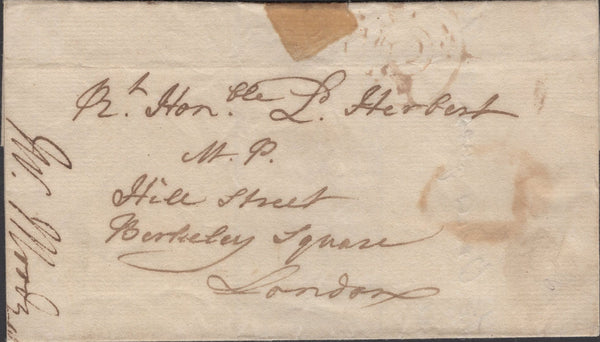 Rt. Honble. Ld. Herbert
M.P.
Hill Street
Berkeley Square
London